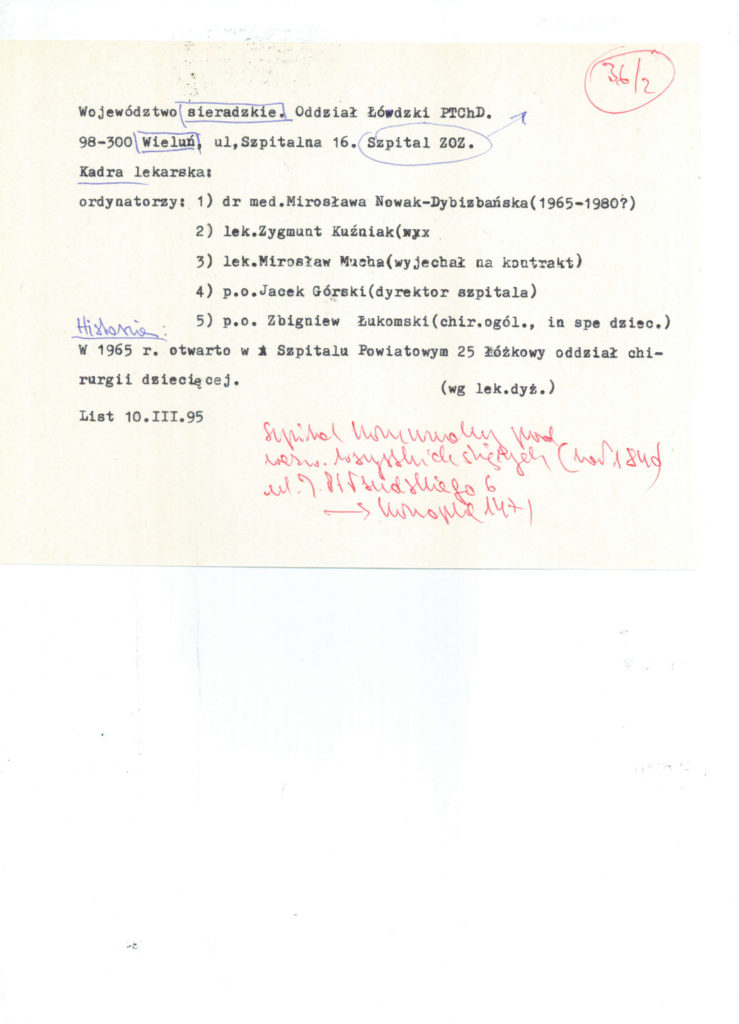 36/2
Województwo sieradzkie. Oddział Łówdzki PTChD.
98-300 Wieluń, ul,Szpitalna 16. Szpital ZOZ.
Kadra lekarska:
ordynatorzy: 1) dr med.Mirosława Nowak-Dybizbańska(1965-1980?)
2) lek.Zygmunt Kuźniak(wyx
3) lek.Mirosław Mucha(wyjechał na kontrakt)
4) p.o.Jacek Górski(dyrektor szpitala)
5) p.o. Zbigniew Łukomski(chir.ogól., in spe dziec.)
Historia:
W 1965 r. otwarto w Szpitalu Powiatowym 25 łóżkowy oddział chi-
rurgii dziecięcej.
(wg lek.dyż.)
List 10.III.95
Szpital Komunalny pod
wezw. wszystkich świętych (
ul. J. Piłsudskiego 6
→ Konopka 147)